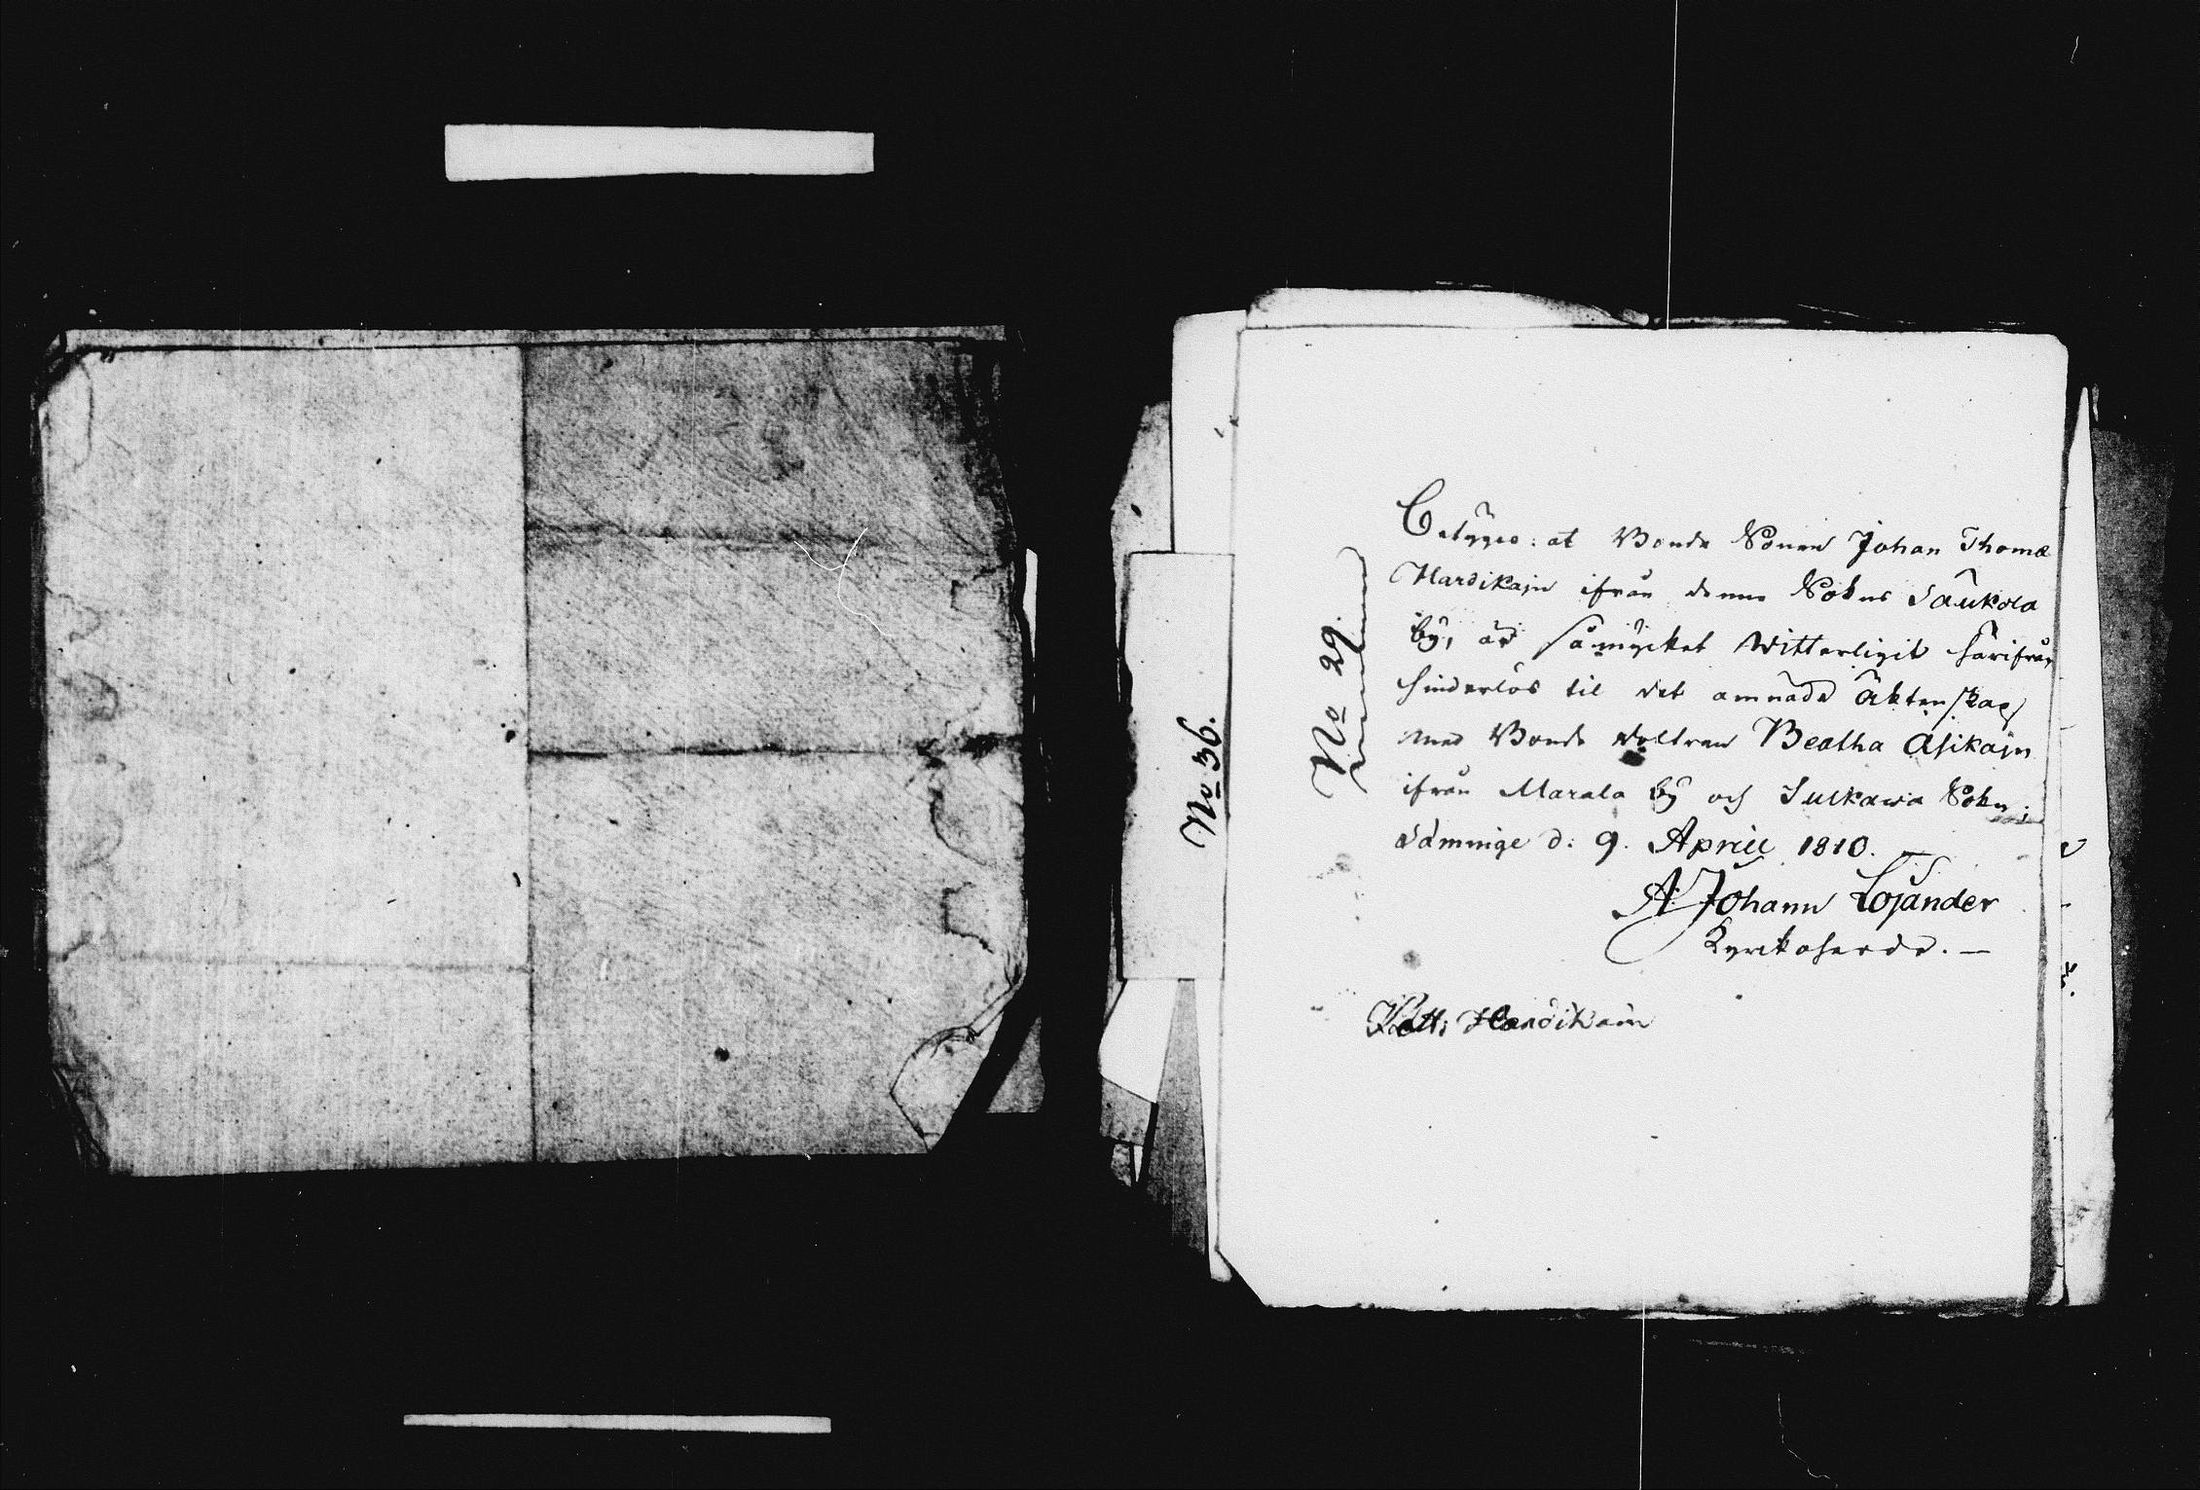 No 36.
No 29.
Betyges: at Bonde Sonen Johan Thomæ
Hardikain ifrån denne Sokns Säukola
by, är såmycket witterligit härifrån
hinderlös til det ämnade äktenskap
med Bonde dottren Beatha Asikain
ifrån Marala by och Sulkawa Sokn;
Säminge d: 9. April 1810.
A: Johann Lojander
Kyrkoherde. —
Hardikain